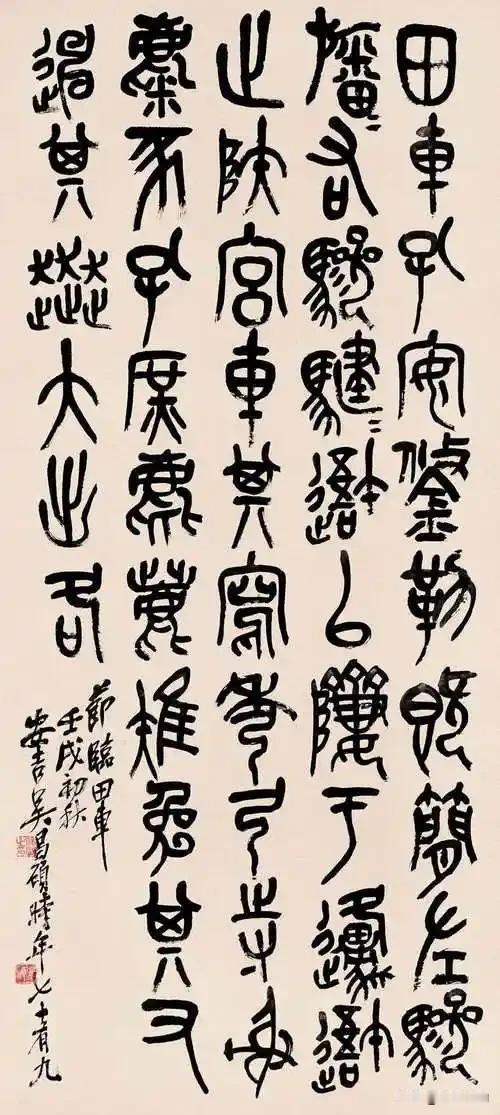 田車孔安鋚勒既簡左驂
旛=右驂騝=吾以隮于邍吾
止陜宮車其寫秀弓寺射
麋豕孔庶麀鹿雉兔其又
其奔大出各
節臨田車
壬戌初秋
安吉吳昌碩時年七十有九